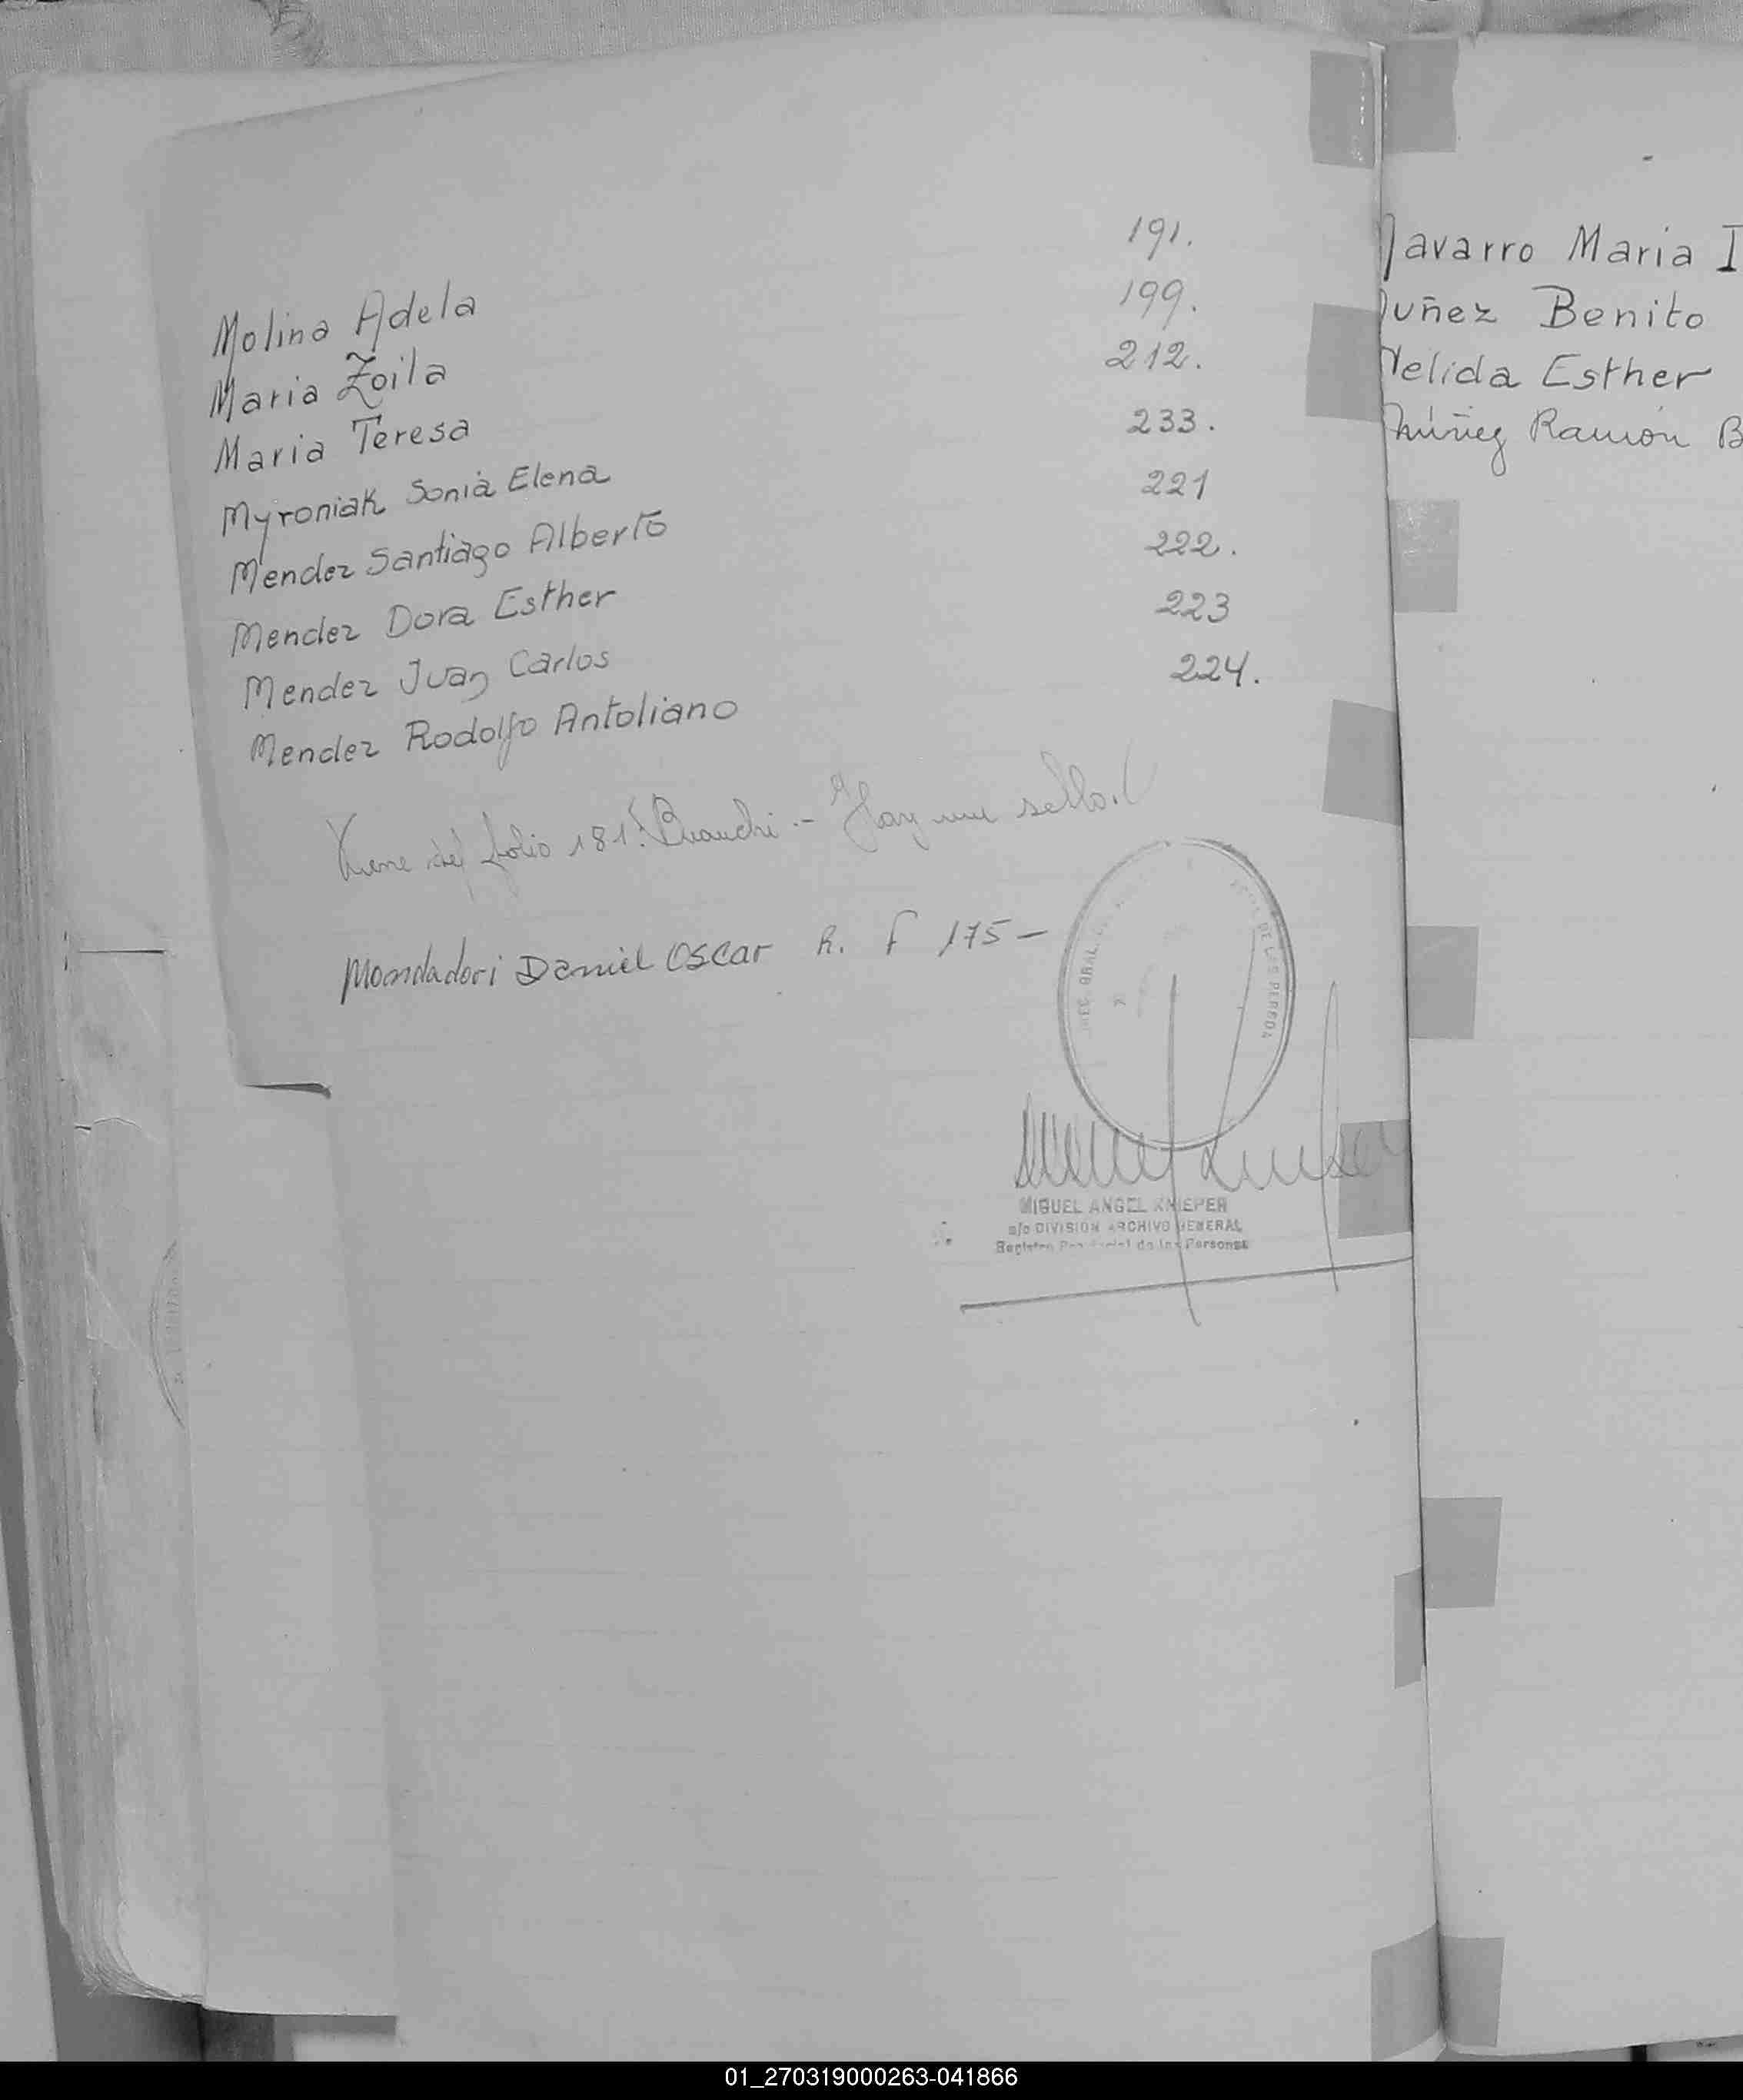 Molina Adela 191.
Maria Zoila 199.
Maria Teresa 212.
Myroniak Sonia Elena 233.
Mendez Santiago Alberto 221
Mendez Dora Esther 222.
Mendez Juan Carlos 223
Mendez Rodolfo Antoliano 224.
Viene del folio 181. Bianchi .- Hay un sello.
Mondadori Daniel Oscar R. F 175 -
GRAL. DE LAS PERSONA
MIGUEL ANGEL KNIEPER
a/c DIVISION ARCHIVO GENERAL
Registro Provincial de las Personas
Navarro Maria I
Nuñez Benito
Nelida Esther
Núñez Ramón B
01_270319000263-041866